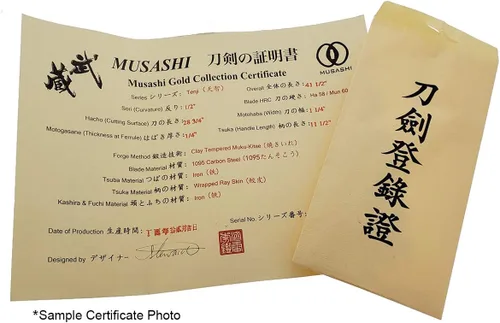 武蔵
MUSASHI 刀剣の証明書
Musashi Gold Collection Certificate
MUSASHI
Series シリーズ: Tenji (天智)
Overall 全体の長さ: 41 1/2"
Sori (Curvature) 反り: 1/2"
Blade HRC 刀の硬さ: Ha 58 / Mun 40
Hacho (Cutting Surface) 刀の長さ: 28 3/4"
Motohaba (Width) 刀の幅: 1 1/4"
Motogasane (Thickness at Ferrule) はばき厚さ: 1/4"
Tsuka (Handle Length) 柄の長さ: 11 1/2"
Forge Method 鍛造技術: Clay Tempered Muku-Kitae (焼きいれ)
Blade Material 材質: 1095 Carbon Steel (1095たんそこう)
Tsuba Material つばの材質: Iron (鉄)
Tsuka Material 柄の材質: Wrapped Ray Skin (鮫皮)
Kashira & Fuchi Material 頭とふちの材質: Iron (鉄)
Serial No. シリーズ番号
Date of Production 生産時間:
Designed by デザイナー
刀劍登錄證
*Sample Certificate Photo